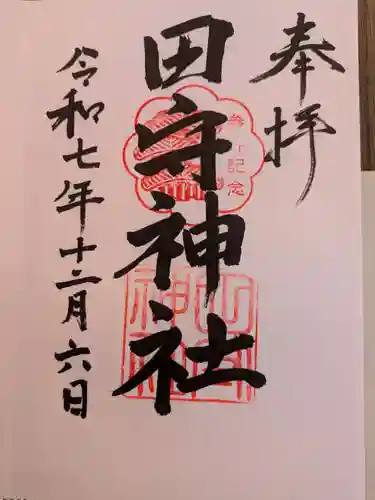 奉拝
田守神社
参拝記念
令和七年十二月六日